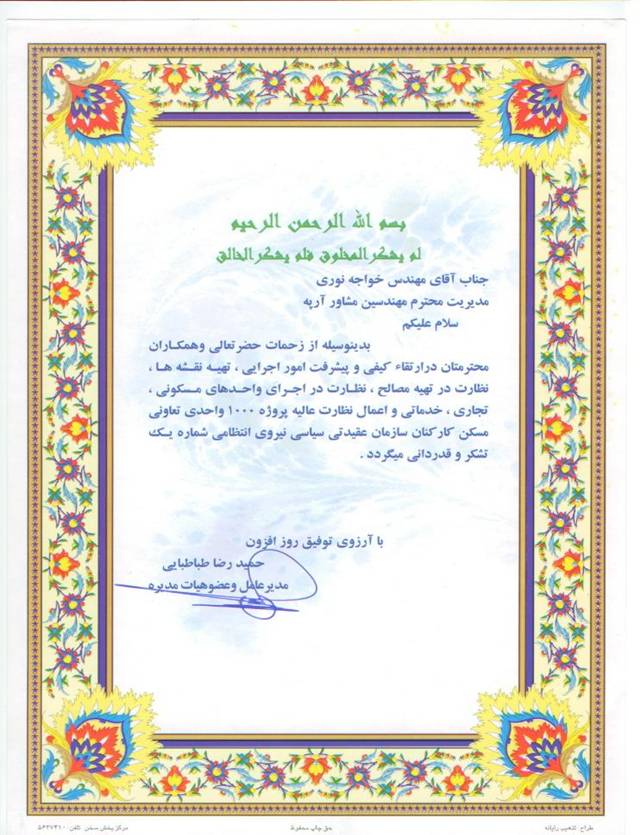 بسم الله الرحمن الرحیم
لم یشکر المخلوق فلم یشکر الخالق
جناب آقای مهندس خواجه نوری
مدیریت محترم مهندسین مشاور آرپه
سلام علیکم
بدینوسیله از زحمات حضرتعالی وهمکاران
محترمتان درارتقاء کیفی و پیشرفت امور اجرایی ، تهیه نقشه ها ،
نظارت در تهیه مصالح ، نظارت در اجرای واحدهای مسکونی ،
تجاری ، خدماتی و اعمال نظارت عالیه پروژه ۱۰۰۰ واحدی تعاونی
مسکن کارکنان سازمان عقیدتی سیاسی نیروی انتظامی شماره یک
تشکر و قدردانی میگردد .
با آرزوی توفیق روز افزون
حمید رضا طباطبایی
مدیرعامل وعضوهیات مدیره
طراح: تذهیب رایانه
حق چاپ محفوظ
مرکز پخش سخن تلفن ۵۶۲۷۴۱۰